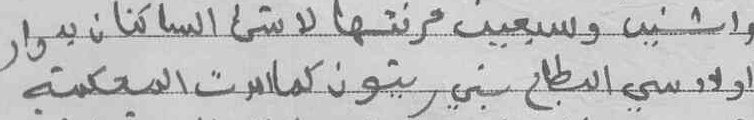 واثنين وسبعين فرنتها لا شئ الساكنان بدوار
اولاد سي البطاح بني ريتون كما امرت المحكمة